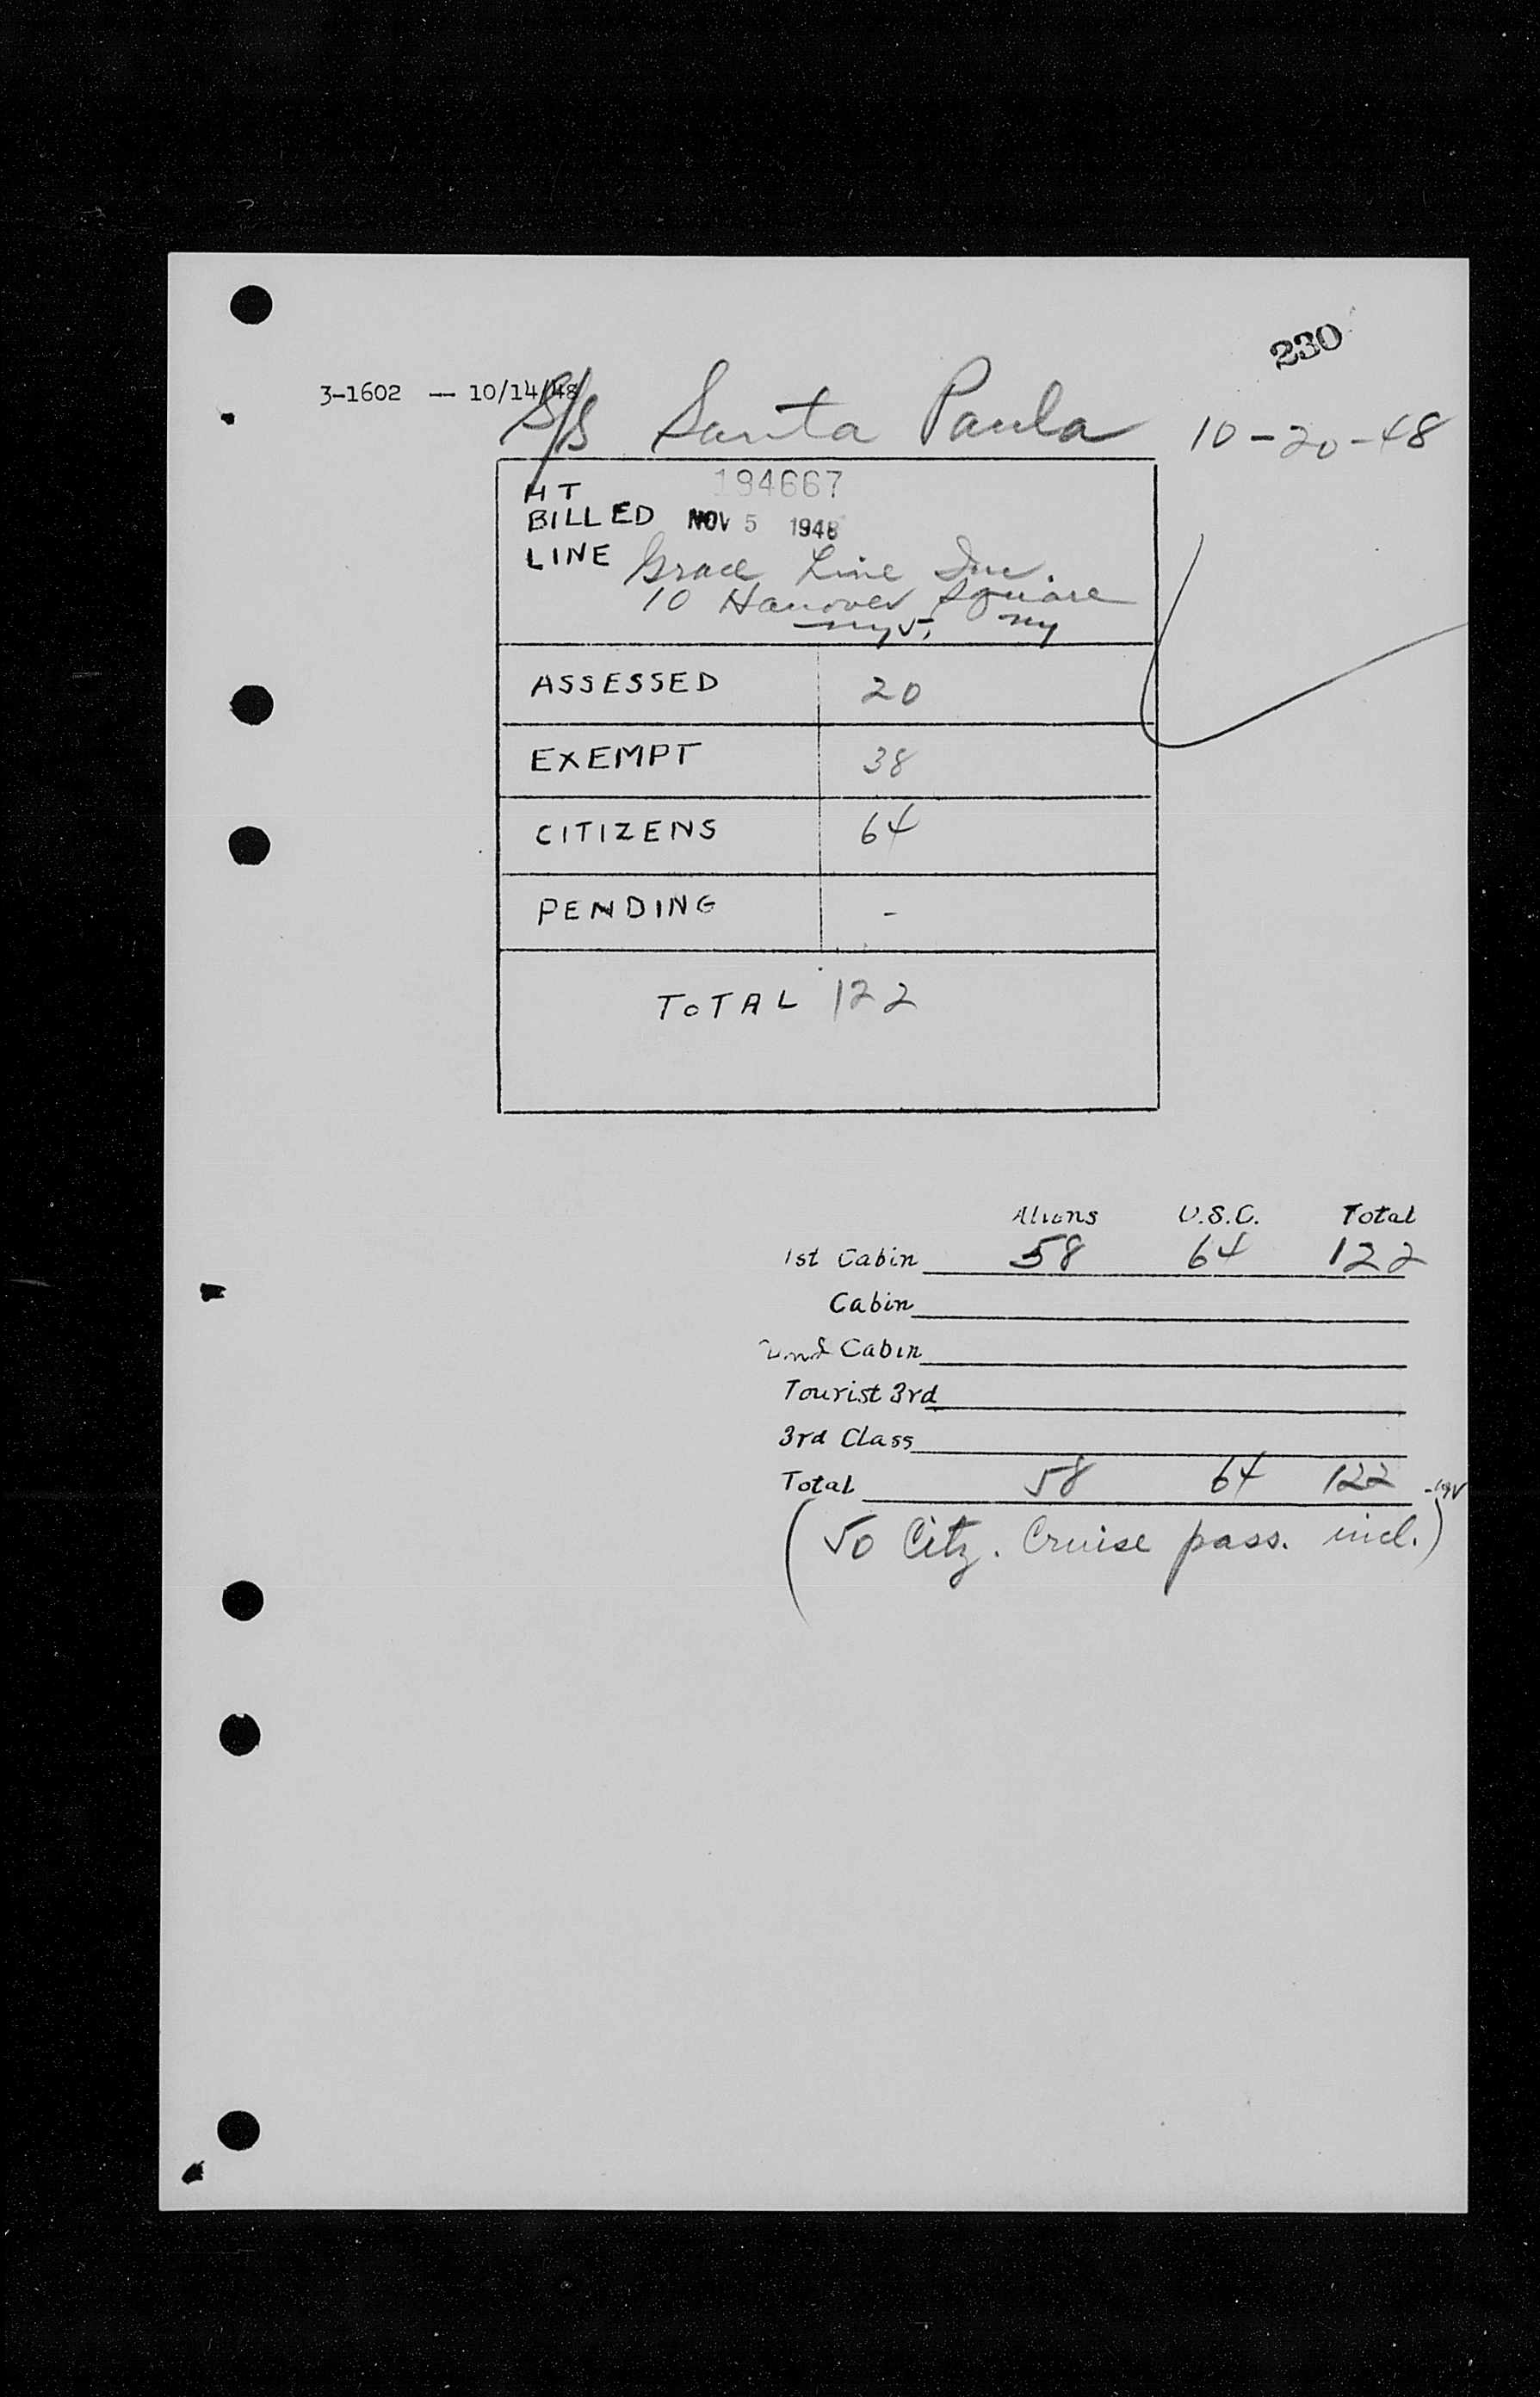 230
3-1602 — 10/14/48
S/S Santa Paula 10-20-48
HT 194667
BILLED NOV 5 1948
LINE Grace Line Inc.
10 Hanover Square
NY 5, NY
ASSESSED 20
EXEMPT 38
CITIZENS 64
PENDING -
TOTAL 122
Aliens U.S.C. Total
1st Cabin 58 64 122
Cabin
2nd Cabin
Tourist 3rd
3rd Class
Total 58 64 122
(50 Citz. Cruise pass. incl.)